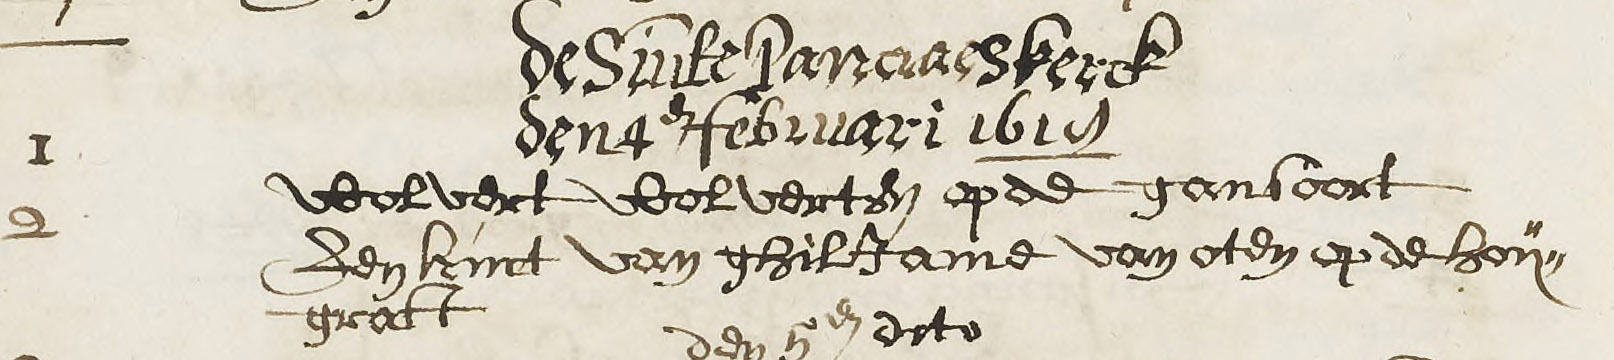 de Sinte Pancraeskerck
den 4en februari 1619
1 wolvert wolvertsen op de gansoort
2 Een kinct van ghilliame van oten op de hou-
gract
den 5en dito